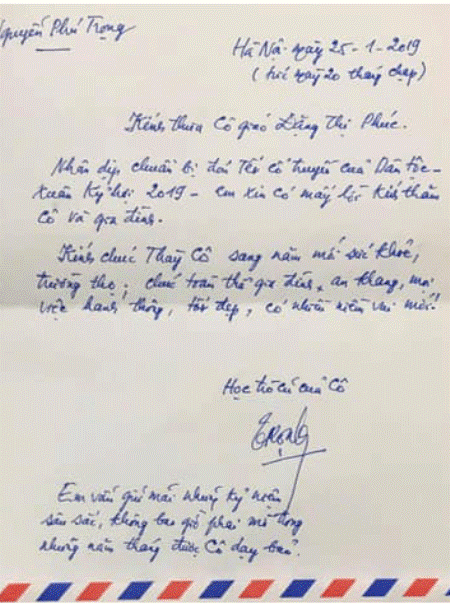 Nguyễn Phú Trọng
Hà Nội ngày 25-1-2019
(tức ngày 20 tháng chạp)
Kính thưa Cô giáo Đặng Thị Phúc.
Nhân dịp chuẩn bị đón Tết cổ truyền của Dân tộc -
Xuân Kỷ hợi 2019 - em xin có mấy lời kính thăm
Cô và gia đình.
Kính chúc Thầy Cô sang năm mới sức khỏe,
trường thọ; chúc toàn thể gia đình an khang, mọi
việc hanh thông, tốt đẹp, có nhiều niềm vui mới!
Học trò cũ của Cô
Trọng
Em vẫn giữ mãi những kỷ niệm
sâu sắc, không bao giờ phai mờ trong
những năm tháng được Cô dạy bảo.